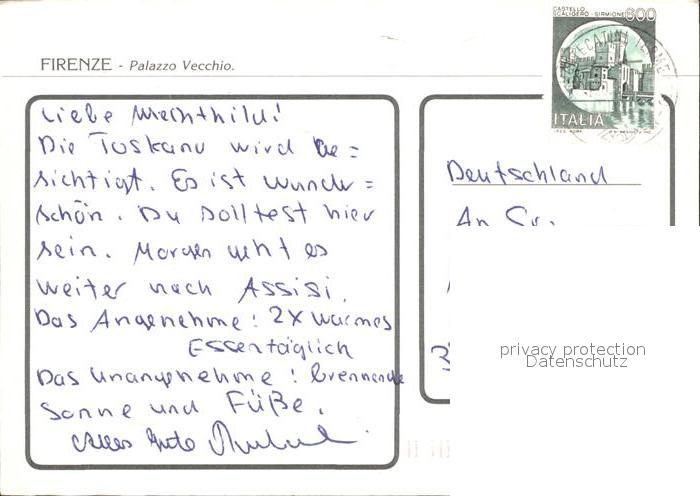 FIRENZE - Palazzo Vecchio.
CASTELLO
SCALIGERO - SIRMIONE
600
ITALIA
Liebe Mechthild!
Die Toskana wird be=
sichtigt. Es ist wunder=
schön. Du solltest hier
sein. Morgen geht es
weiter nach Assisi.
Das Angenehme: 2x warmes
Essen täglich
Das Unangenehme: brennende
Sonne und Füße.
Alles Gute
Deutschland
An
privacy protection
Datenschutz